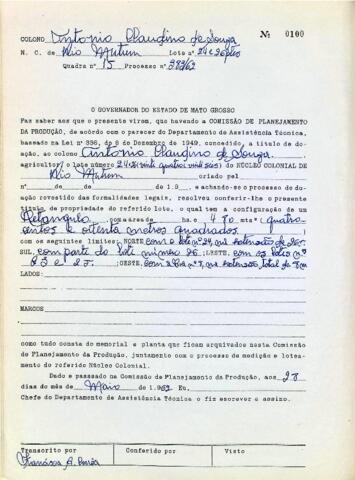 COLONO Antonio Claudino de Souza Nº 0100
N. C. de Rio Mutum Lote nº 24 e 26
Quadra nº 15 Processo nº 383/62
O GOVERNADOR DO ESTADO DE MATO GROSSO
Faz saber aos que o presente virem, que havendo a COMISSÃO DE PLANEJAMENTO
DA PRODUÇÃO, de acôrdo com o parecer do Departamento de Assistência Técnica,
baseado na Lei nº 336, de 6 de Dezembro de 1949, concedido, a titulo de doa-
ção, ao colono Antonio Claudino de Souza.
agricultor, o lote número 24 e 26 (vinte quatro e vinte seis) do NÚCLEO COLONIAL DE
Rio Mutum criado pel
nº de de de 19 e achando-se o processo de dua
ção revestido das formalidades legais, resolveu conferir-lhe o presente
titulo, de propriedade do referido lote, o qual tem a configuração de um
Retangulo com a área de ha. e 480 mts² (quatro
centos e oitenta metros quadrados.)
com os seguintes limites: NORTE, com o lote nº 24, na extensão de
SUL, com parte do lote número 26. LESTE, com os lotes nº
23 e 25. OESTE, com a nº 7, na extensão total de
LADOS:
MARCOS
como tudo consta do memorial e planta que ficam arquivados nesta Comissão
de Planejamento da Produção, juntamente com o processo de medição e lotea-
mento do referido Núcleo Colonial.
Dado e passado na Comissão de Planejamento da Produção, aos 28
dias do mês de Maio de 1.962 Eu,
Chefe do Departamento de Assistência Técnica o fiz escrever e assino.
Transcrito por Conferido por Visto
Francisca A.